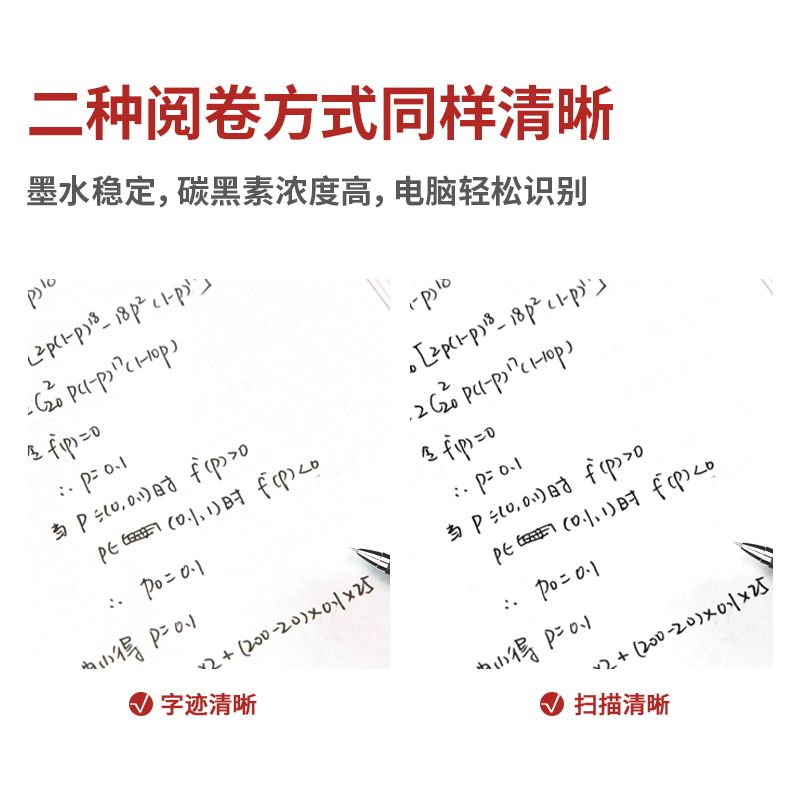 二种阅卷方式同样清晰
墨水稳定，碳黑素浓度高，电脑轻松识别
p)18
[2p(1-p)18-18p2(1-p)17]
2C220 p(1-p)17(1-10p)
令 f'(p)=0
∴ p=0.1
当 P=(0,0.1)时 f'(p)>0
p∈ (0.1,1)时 f'(p)<0
∴ p0=0.1
得 p=0.1
x2+(200-20)×0.1×25
-p)18
[2p(1-p)18-18p2(1-p)17]
2C220 p(1-p)17(1-10p)
令 f'(p)=0
∴ p=0.1
当 P=(0,0.1)时 f'(p)>0
p∈ (0.1,1)时 f'(p)<0
∴ p0=0.1
得 p=0.1
x2+(200-20)×0.1×25
字迹清晰
扫描清晰